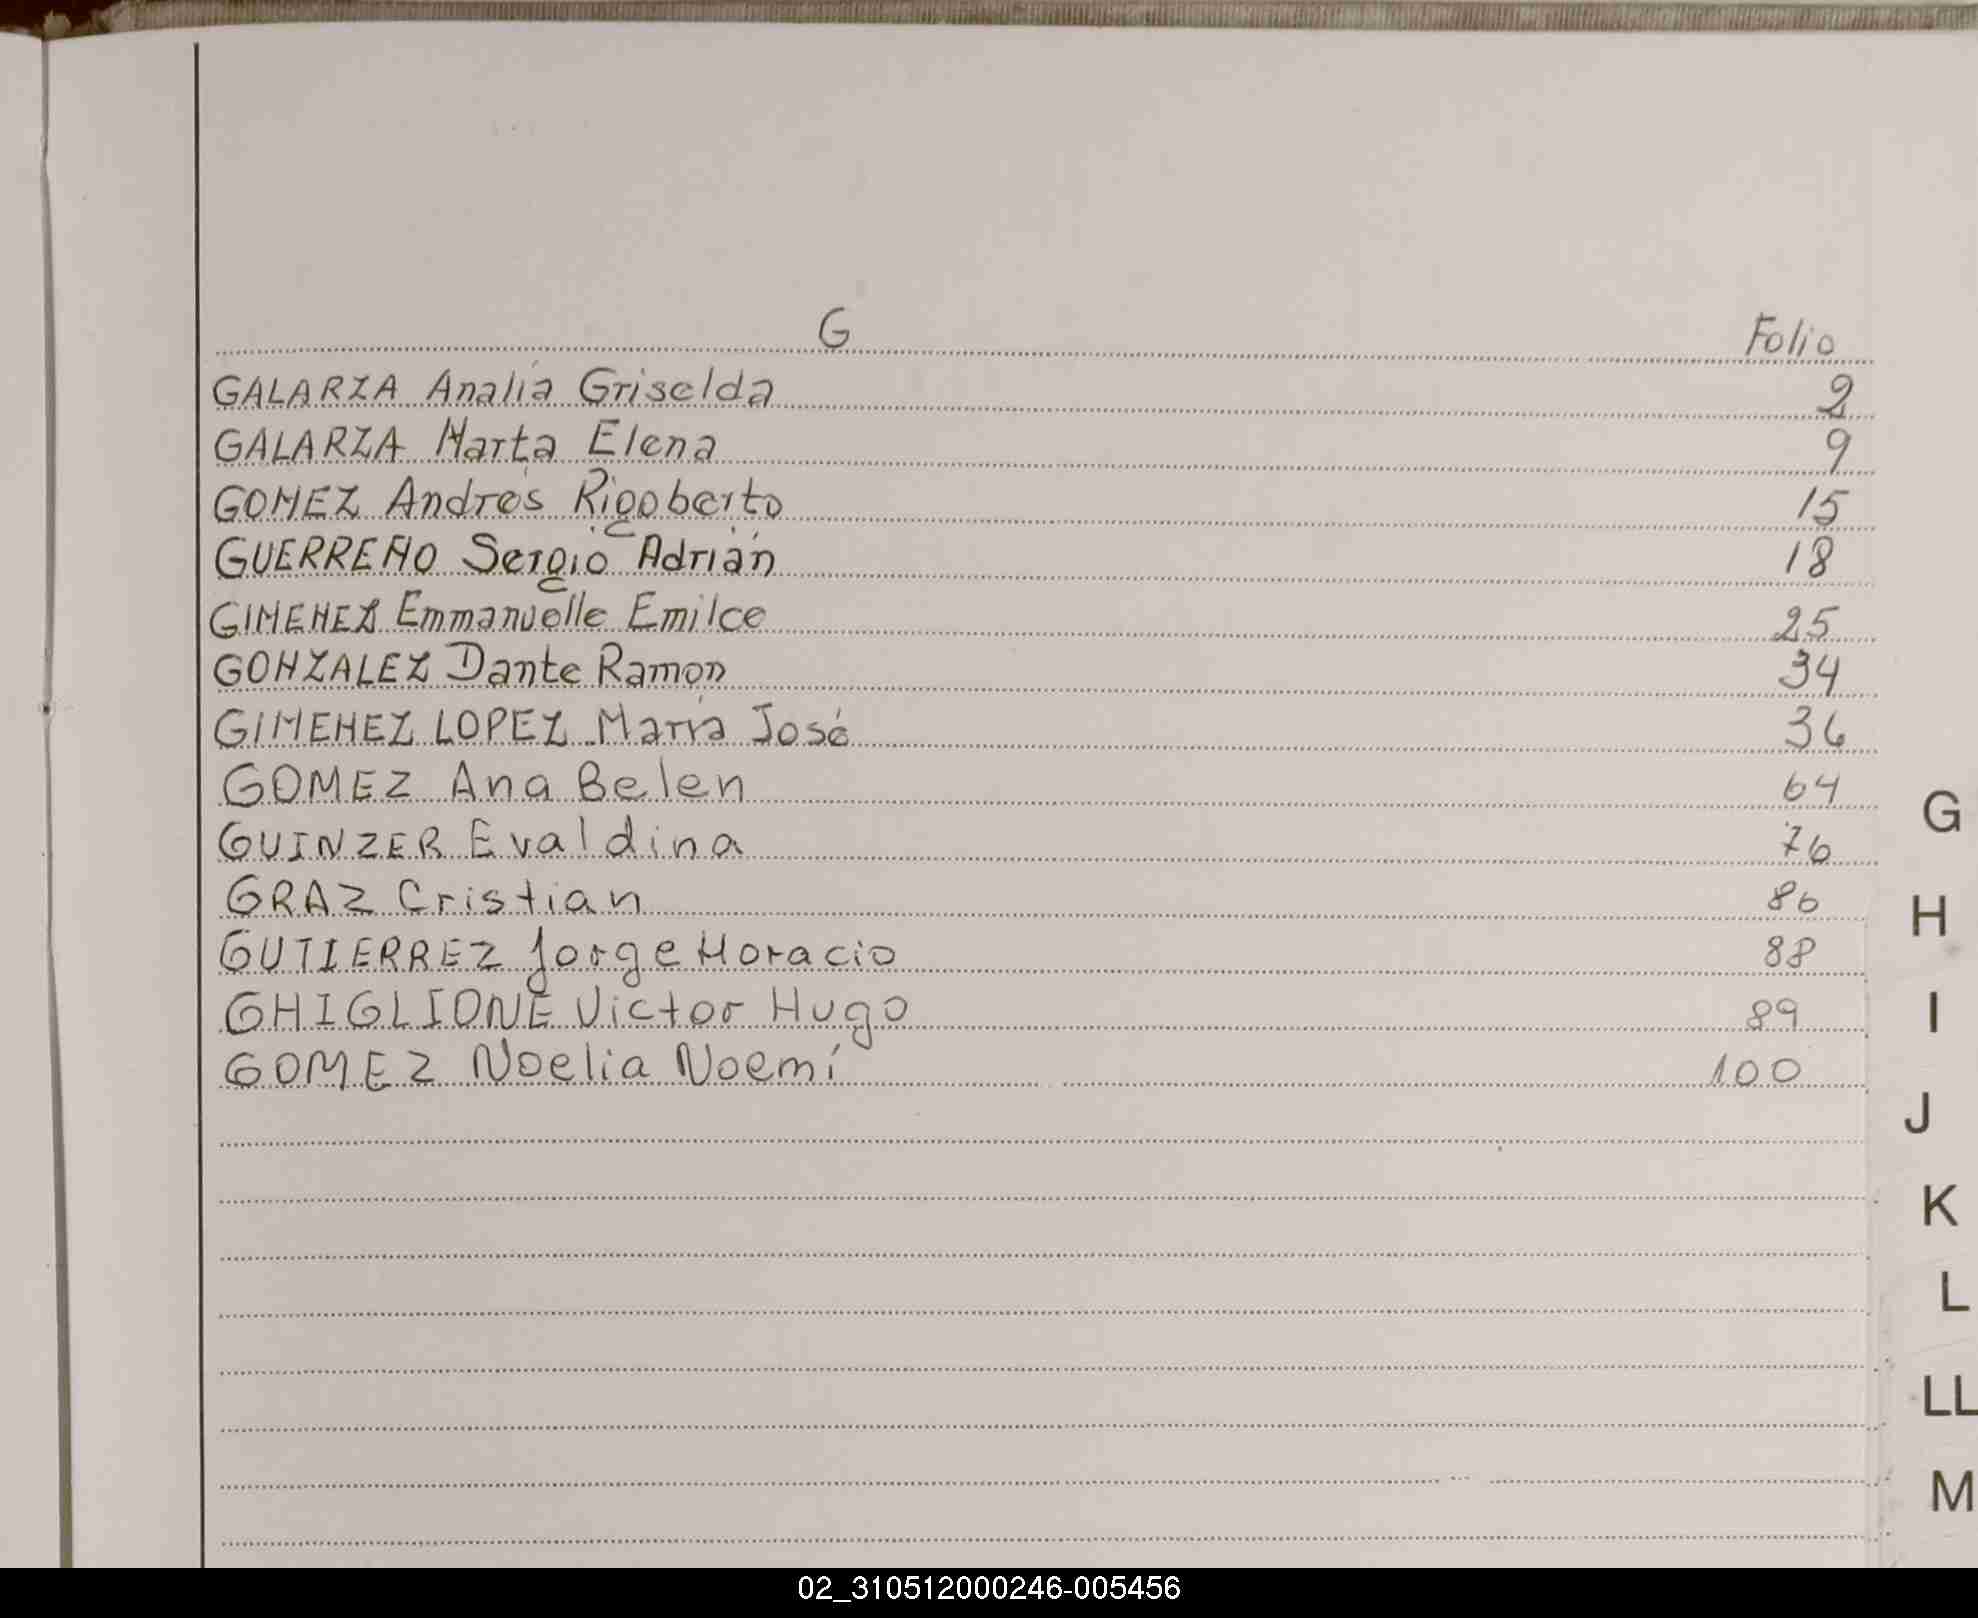 G Folio
GALARZA Analía Griselda 2
GALARZA Marta Elena 9
GOMEZ Andrés Rigoberto 15
GUERREÑO Sergio Adrián 18
GIMENEZ Emmanuelle Emilce 25
GONZALEZ Dante Ramon 34
GIMENEZ LOPEZ María José 36
GOMEZ Ana Belen 64
GUINZER Evaldina 76
GRAZ Cristian 86
GUTIERREZ Jorge Horacio 88
GHIGLIONE Victor Hugo 89
GOMEZ Noelia Noemí 100
G
H
I
J
K
L
LL
M
02_310512000246-005456